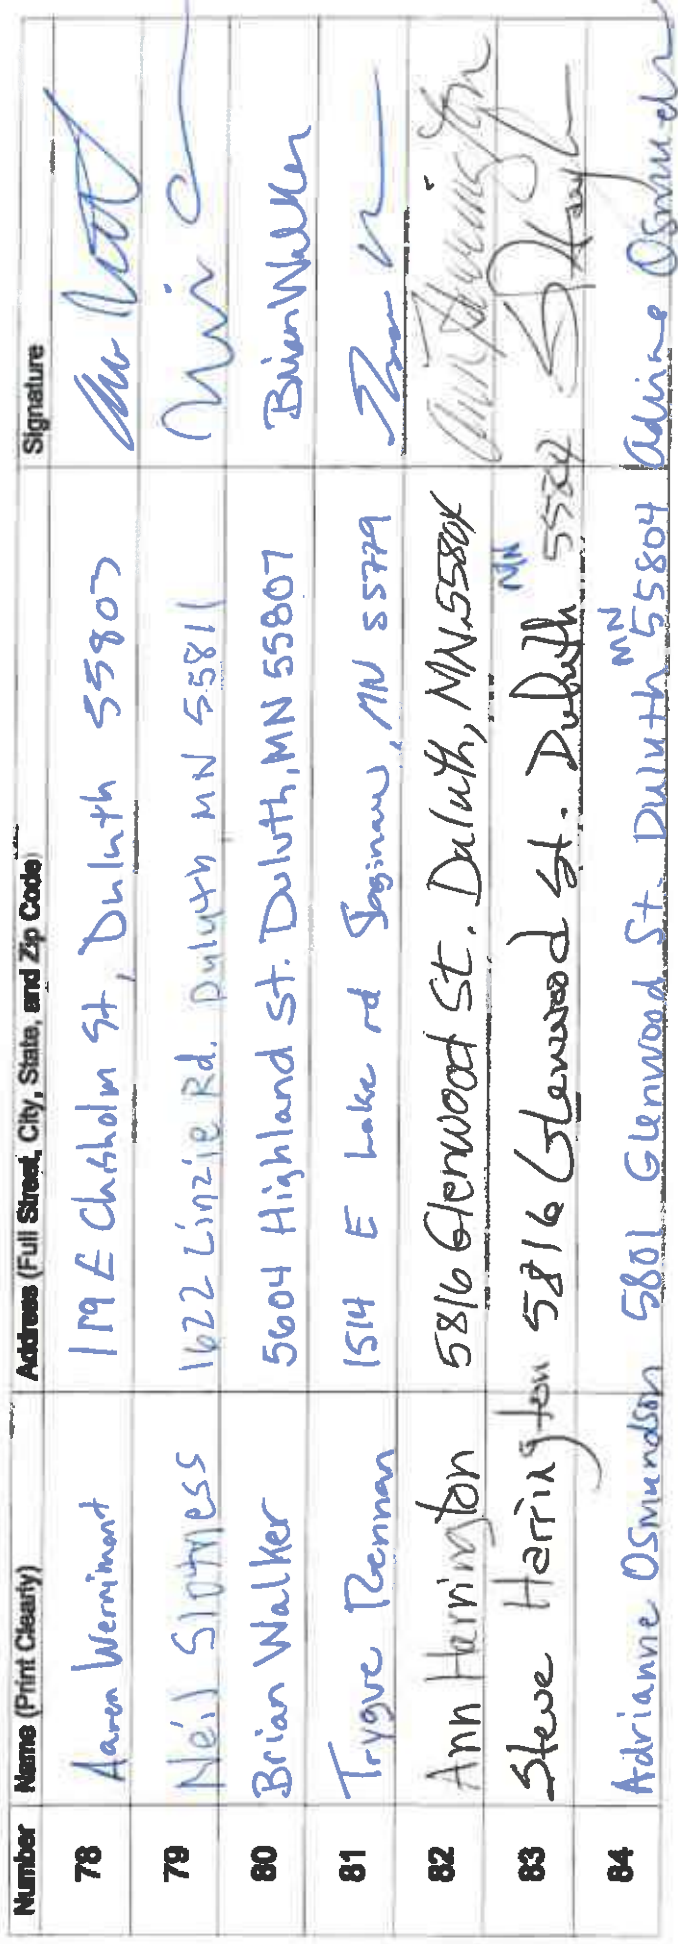 Number Name (Print Clearly) Address (Full Street, City, State, and Zip Code) Signature
78 Aaron Wernimont 119 E Chisholm St, Duluth 55803
79 Neil Slotness 1622 Linzie Rd. Duluth MN 55811
80 Brian Walker 5604 Highland St. Duluth, MN 55807 Brian Walker
81 Trygve Rennan 1514 E Lake rd Saginaw, MN 55779
82 Ann Harrington 5816 Glenwood St. Duluth, MN. 55804 Ann Harrington
83 Steve Harrington 5816 Glenwood St. Duluth MN
84 Adrianne Osmundson 5801 Glenwood St. Duluth MN 55804 Adrianne Osmund